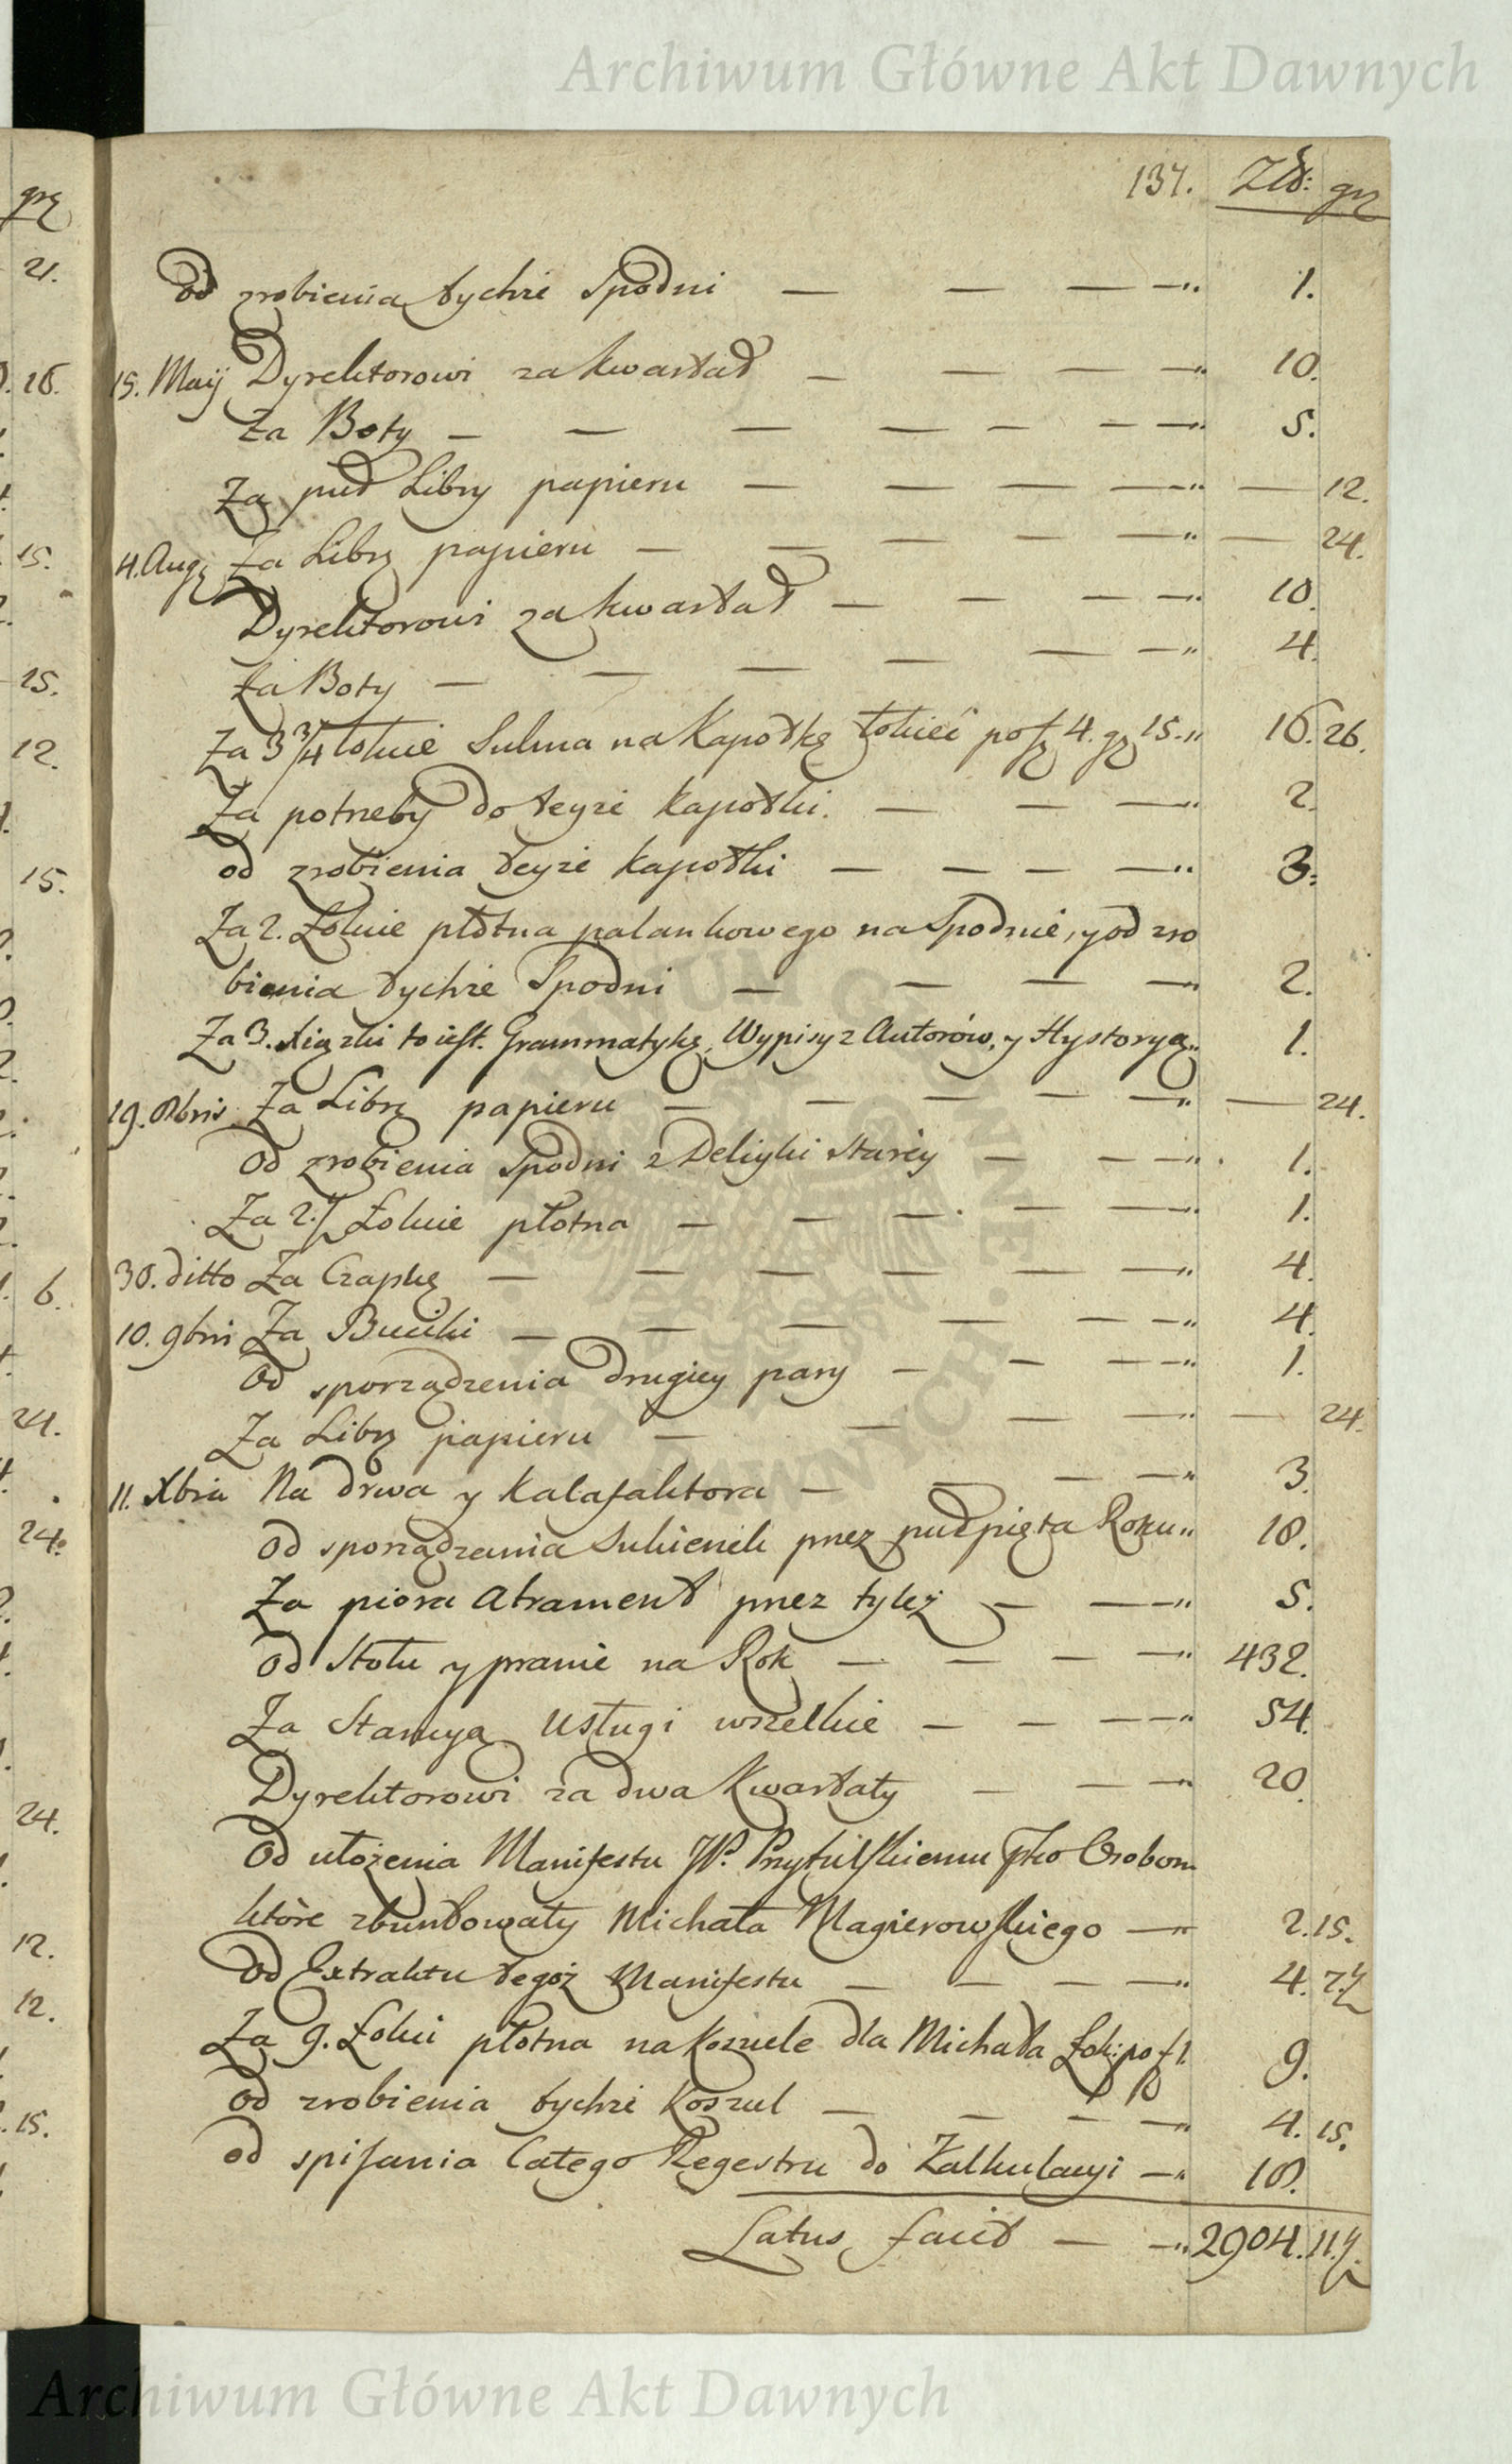 Archiwum Główne Akt Dawnych
137. Złł: gr
Od zrobienia tychże Spodni — — — —„ 1.
15. Maij Dyrektorowi za kwartał — — — —„ 10.
Za Boty — — — — — — —„ 5.
Za puł Libry papieru — — — —„ — 12.
4. Aug Za Librę papieru — — — — — —„ — 24.
Dyrektorowi za kwartał — — — —„ 10.
Za Boty — — — — — —„ 4.
Za 3 3/4 łokcie Sukna na Kapotkę łokieć po f 4. gr 15.„ 16. 26.
Za potrzeby do teyże kapotki. — — —„ 2.
od zrobienia teyże kapotki — — — —„ 3.
Za 2. Łokcie płótna palankowego na Spodnie, y od zro
bienia tychże Spodni — — — —„ 2.
Za 3. xiążki to iest. Grammatykę, Wypisy z Autorów, y Hystoryą„ 1.
19. 8bris Za Librę papieru — — — — —„ — 24.
Od zrobienia Spodni z Deliyki starey — — —„ 1.
Za 2. 1/2 Łokcie płotna — — — — —„ 1.
30. ditto Za Czapkę — — — — — —„ 4.
10. 9bris Za Buciki — — — — — —„ 4.
Od sporządzenia drugiey pary — — — —„ 1.
Za Librę papieru — — — —„ — 24.
11. Xbris Na drwa y kalafaktora — — — —„ 3.
Od sporządzania Sukienek przez puł pięta Roku„ 18.
Za piora atrament przez tyleż — — —„ 5.
Od Stołu y pranie na Rok — — — —„ 432.
Za Stancyą usługi wszelkie — — — —„ 54.
Dyrektorowi za dwa Kwartały — — —„ 20.
Od ułożenia Manifestu JP. Przyłuskiemu pko Osobom
które zbuntowały Michała Magierowskiego —„ 2. 15.
Od Extraktu tegoż Manifestu — — — —„ 4. 7. 1/2
Za 9. Łokci płotna na koszule dla Michała Łok: po f 1. 9.
Od zrobienia tychże koszul — — — —„ 4. 15.
od spisania całego Regestru do Kalkulacyi —„ 18.
Latus facit — —„ 2904. 11. 1/2
Archiwum Główne Akt Dawnych